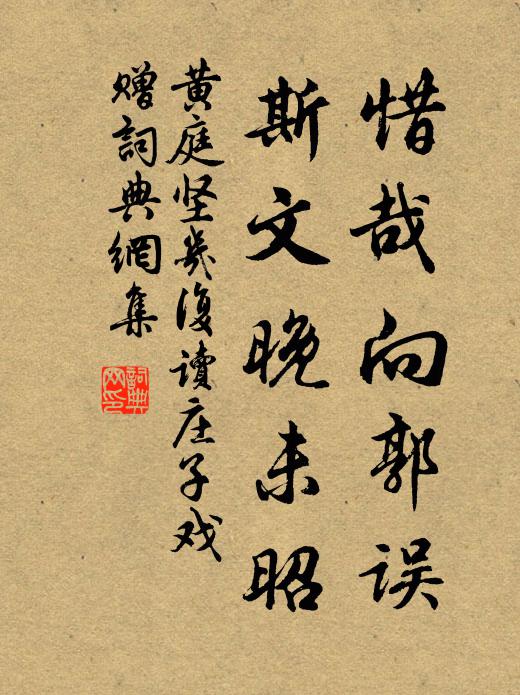 惜哉向郭误
斯文晚未昭
黄庭坚几复读庄子戏
赠词典網集
詞典
网印